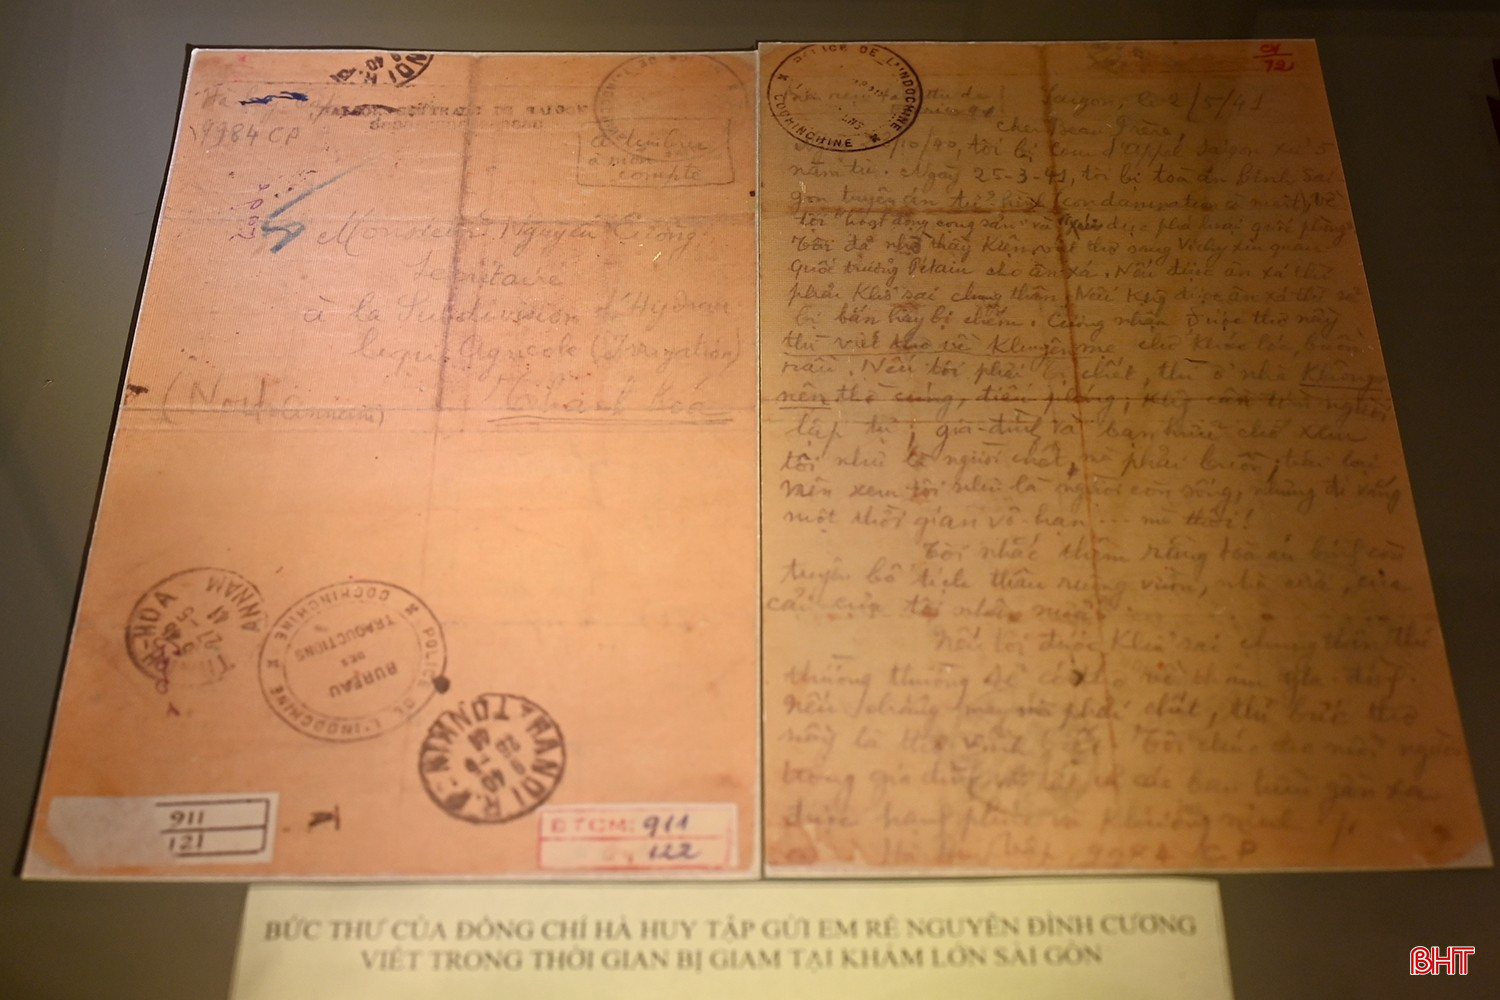 HANOI R.P.
MAISON CENTRALE DE SAIGON
9984 CP
à timbrer
à mon
compte
Monsieur Nguyễn Cương
Secrétaire
à la Subdivision d'Hydrau
lique Agricole (Irrigation)
(Nord-Annam) Thanh Hoá
TH-HOA ANNAM
POLICE DE L'INDOCHINE
COCHINCHINE
BUREAU
DES
TRADUCTIONS
HANOI R.P. TONKIN
911
121
BTCM: 911
122
CV
72
POLICE DE L'INDOCHINE
COCHINCHINE
Saigon, le 2/5/41
Cher Beau Frère,
/10/40, tôi bị cour d'appel Saigon xử 5
năm tù. Ngày 25-3-41, tôi bị toà án binh Sài
gòn tuyên án tử hình (condamnation à mort), vì
tôi hoạt động cộng sản và phá hoại quốc phòng
Tôi đã nhờ thầy Kiện viết thơ sang Vichy xin quan
Quốc trưởng Pétain cho ân xá. Nếu được ân xá thì
phải khổ sai chung thân. Nếu không được ân xá thì sẽ
bị bắn hay bị chém. Cương nhận được thơ này
thì viết thơ về khuyên mẹ chớ khóc lóc, buồn
rầu. Nếu tôi phải bị chết, thì ở nhà không
nên thờ cúng, điếu phúng; không cần nuôi người
lập tự; gia-đình và bạn hữu chớ xem
tôi như là người chết, mà phải buồn; trái lại
nên xem tôi như là người còn sống, nhưng đi vắng
một thời gian vô-hạn ... mà thôi!
Tôi nhắc thêm rằng toà án binh còn
tuyên bố tịch thâu ruộng vườn, nhà cửa, của
cải của tôi nhiều nữa.
Nếu tôi được khổ sai chung thân thì
thường thường sẽ có thơ về thăm gia-đình.
Nếu chẳng may mà phải chết, thì bức thơ
này là thơ vĩnh biệt. Tôi chúc cho mỗi người
trong gia đình và tất cả các bạn hữu gần xa
được hạnh phúc và khương ninh.
Hà Huy Tập 9984 CP
BỨC THƯ CỦA ĐỒNG CHÍ HÀ HUY TẬP GỬI EM RỂ NGUYỄN ĐÌNH CƯƠNG
VIẾT TRONG THỜI GIAN BỊ GIAM TẠI KHÁM LỚN SÀI GÒN
BHT